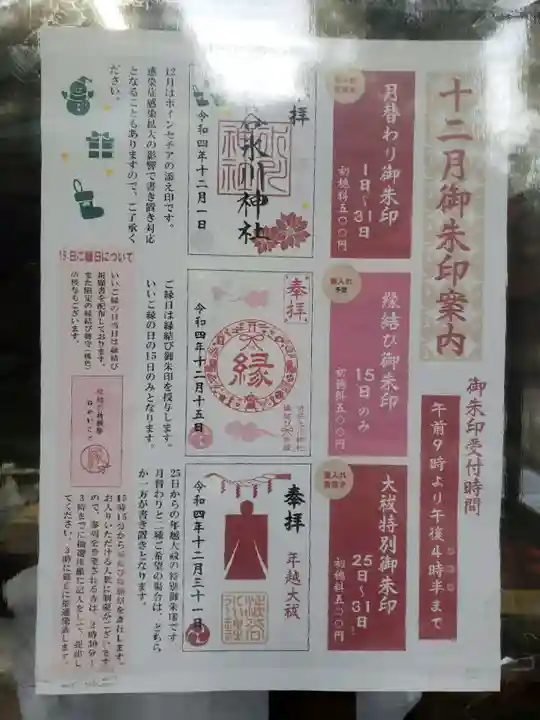 十二月御朱印案内
御朱印受付時間
午前9時より午後4時半まで
月替わり御朱印
1日〜31日
初穂料五〇〇円
縁結び御朱印
15日のみ
初穂料五〇〇円
大祓特別御朱印
25日〜31日
初穂料五〇〇円
拝
氷川神社
令和四年十二月一日
12月はポインセチアの添え印です。
感染症感染拡大の影響で書き置き対応
となることもありますので、ご了承く
ださい。
奉拝
縁
令和四年十二月十五日
ご縁日は縁結び御朱印を授与します。
いいご縁の日の15日のみとなります。
15日ご縁日について
いいご縁の日当日は縁結び
祈願書を配布しております。
また限定の縁結び勝守(桃色)
の授与もございます。
奉拝
年越大祓
令和四年十二月三十一日
25日からの年越大祓の特別御朱印です
月替わりと二種ご希望の場合は、どちら
か一方が書き置きとなります。